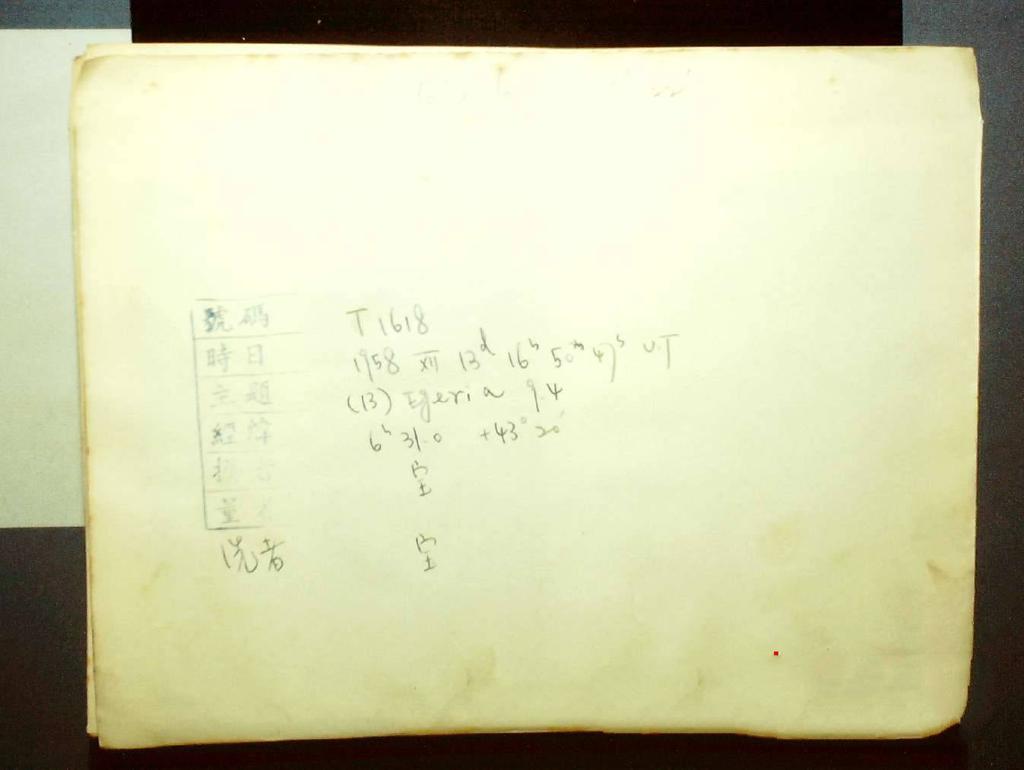 號碼 T 1618
時日 1958 XII 13d 16h 50m 47s UT
主題 (13) Egeria 9.4
經緯 6h 31.0 +43° 20'
攝者
量者
洗者